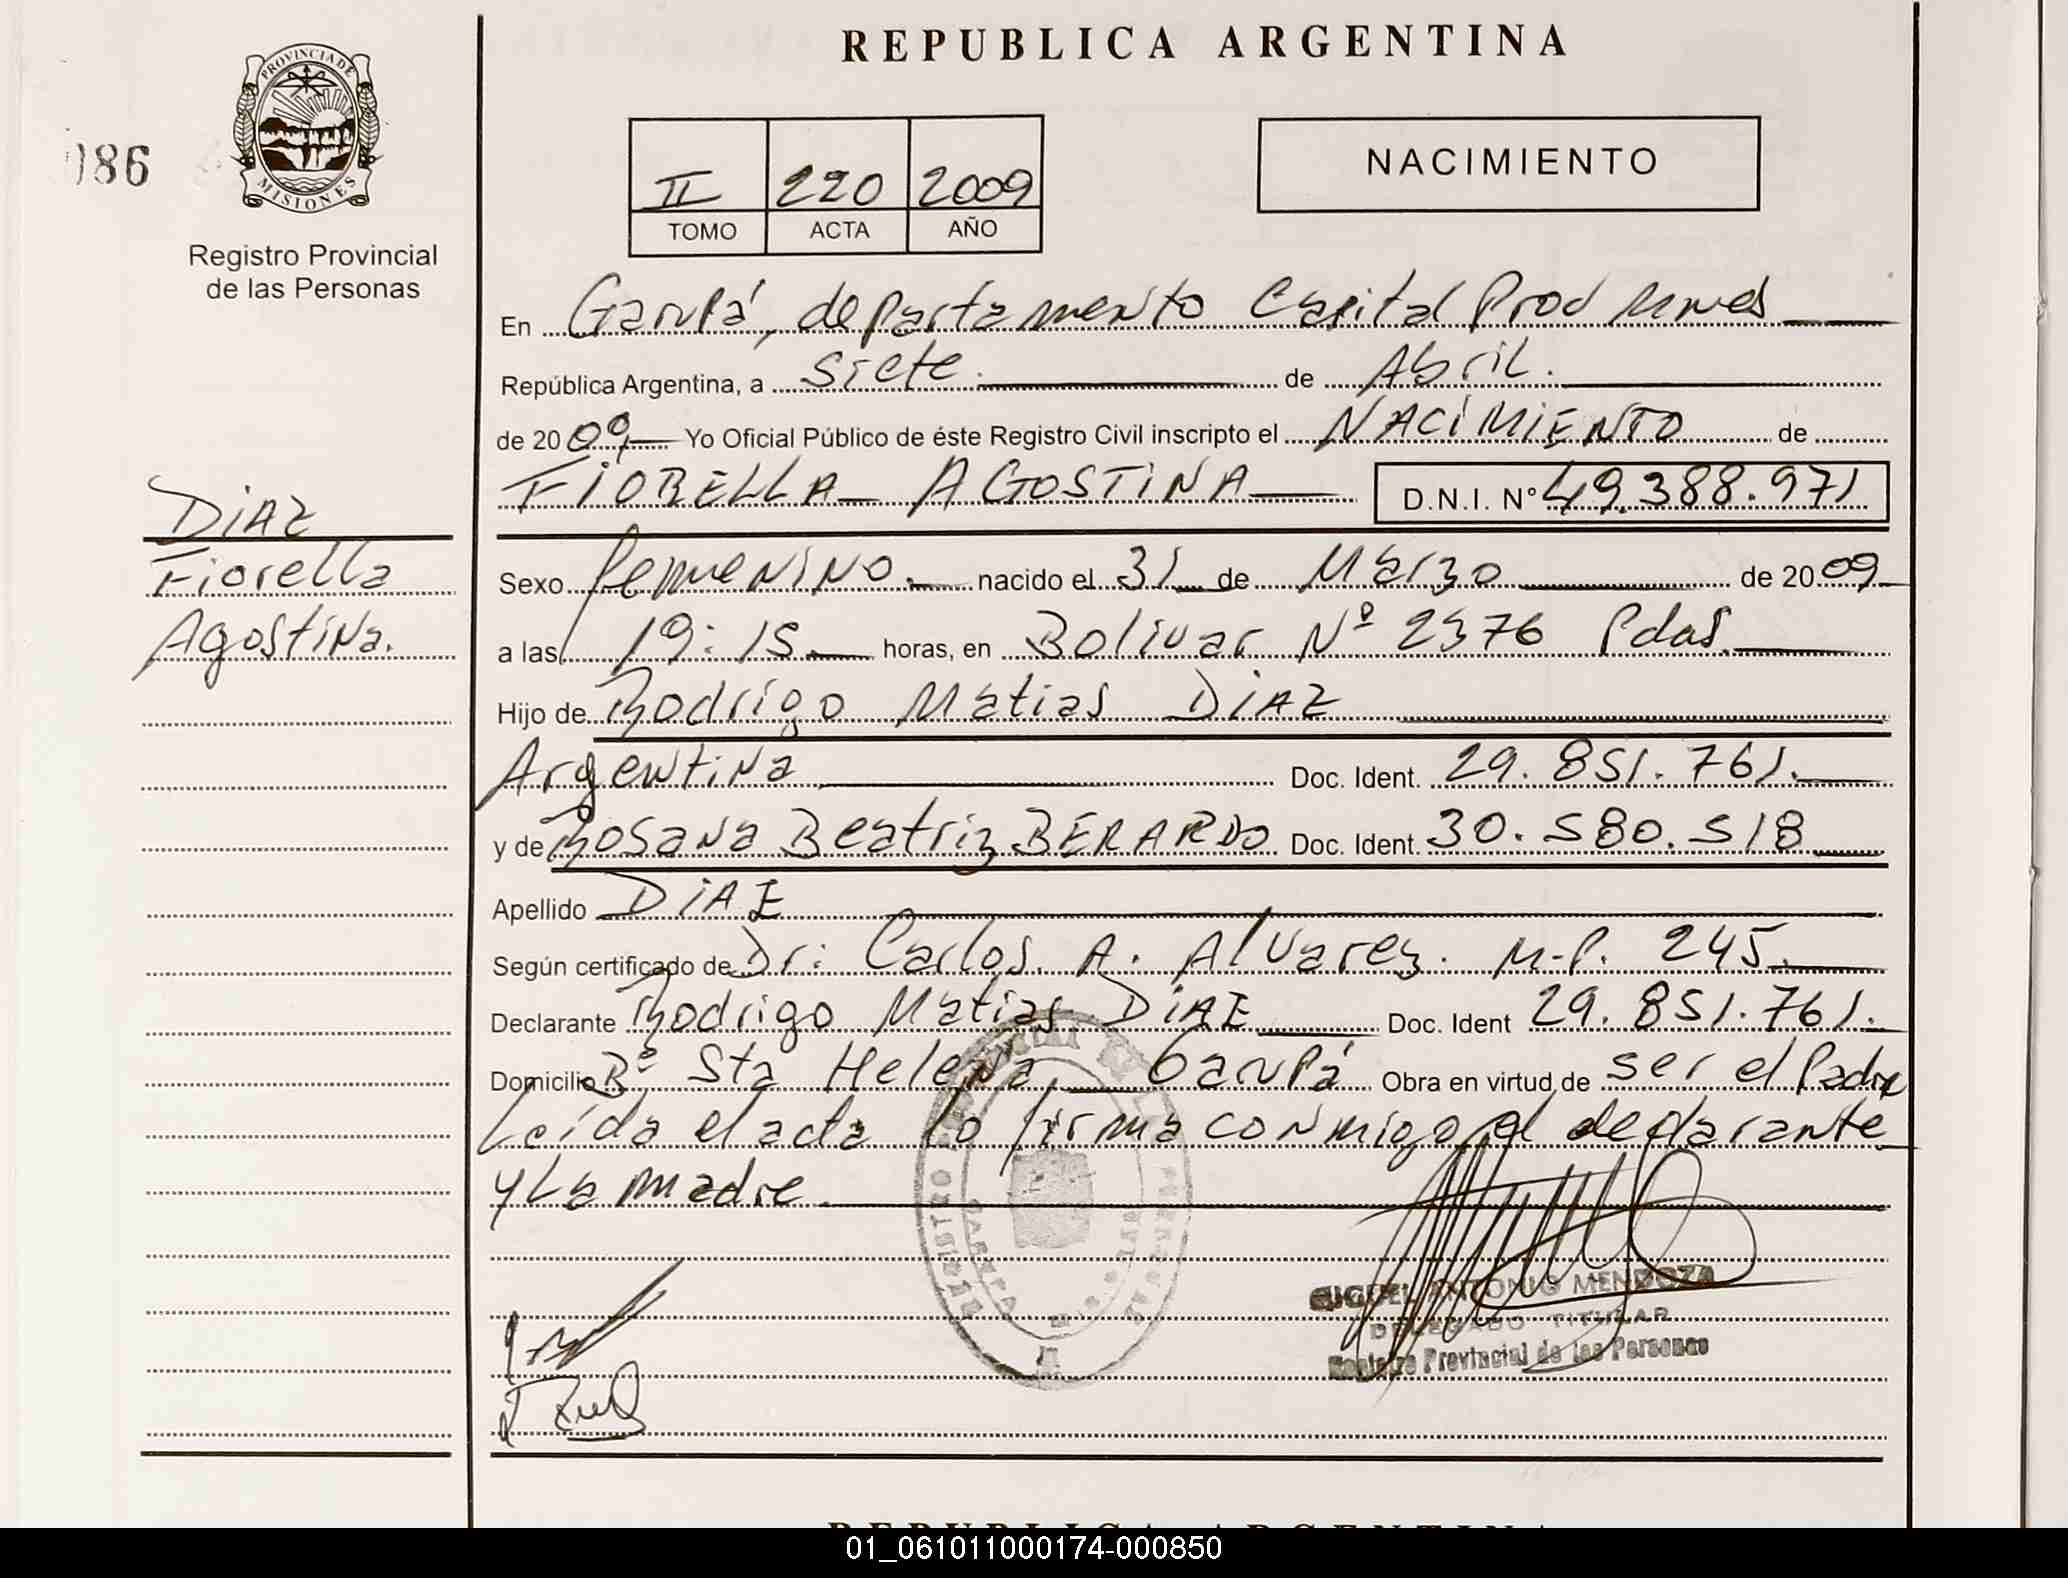 REPUBLICA ARGENTINA
PROVINCIA DE
MISIONES
086
Registro Provincial
de las Personas
II 220 2009
TOMO ACTA AÑO
NACIMIENTO
En Garupá, departamento Capital Prov
República Argentina, a siete. de Abril.
de 2009 Yo Oficial Público de éste Registro Civil inscripto el NACIMIENTO de
FIORELLA AGOSTINA D.N.I. Nº 49.388.971
DIAZ
Fiorella
Agostina.
Sexo Femenino. nacido el 31 de Marzo de 2009
a las 19:15 horas, en Bolivar Nº 2376 Pdas.
Hijo de Rodrigo Matias DIAZ
Argentina Doc. Ident. 29.851.761.
y de Rosana Beatriz BERARDO Doc. Ident. 30.580.518
Apellido DIAZ
Según certificado de Dr: Carlos. A. Alvarez. M.P. 245.
Declarante Rodrigo Matias DIAZ Doc. Ident 29.851.761.
Domicilio Bº Sta Helena, Garupá Obra en virtud de ser el Padre
Leída el acta la firma conmigo el declarante
y La madre.
MIGUEL ANTONIO MENDOZA
DELEGADO TITULAR
Registro Provincial de las Personas
REPUBLICA ARGENTINA
01_061011000174-000850